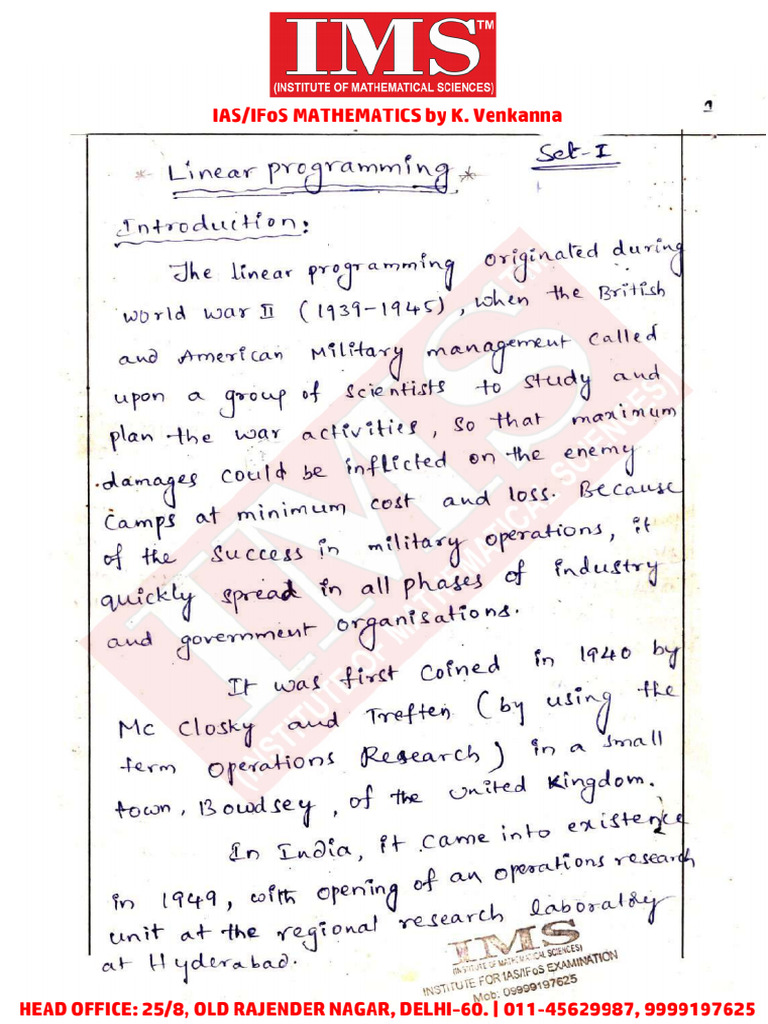 IMS™
(INSTITUTE OF MATHEMATICAL SCIENCES)
IAS/IFoS MATHEMATICS by K. Venkanna
1
Set-I
* Linear programming *
Introduction:
The linear programming originated during
world war II (1939-1945), when the British
and American Military management called
upon a group of scientists to study and
plan the war activities, so that maximum
damages could be inflicted on the enemy
camps at minimum cost and loss. Because
of the success in military operations, it
quickly spread in all phases of industry
and government organisations.
It was first coined in 1940 by
Mc Closky and Treften (by using the
term operations Research) in a small
town, Bowdsey, of the united kingdom.
In India, it came into existence
in 1949, with opening of an operations research
unit at the regional research laboratory
at Hyderabad.
IMS
(INSTITUTE OF MATHEMATICAL SCIENCES)
INSTITUTE FOR IAS/IFoS EXAMINATION
Mob: 09999197625
IMS™
(INSTITUTE OF MATHEMATICAL SCIENCES)
HEAD OFFICE: 25/8, OLD RAJENDER NAGAR, DELHI-60. | 011-45629987, 9999197625